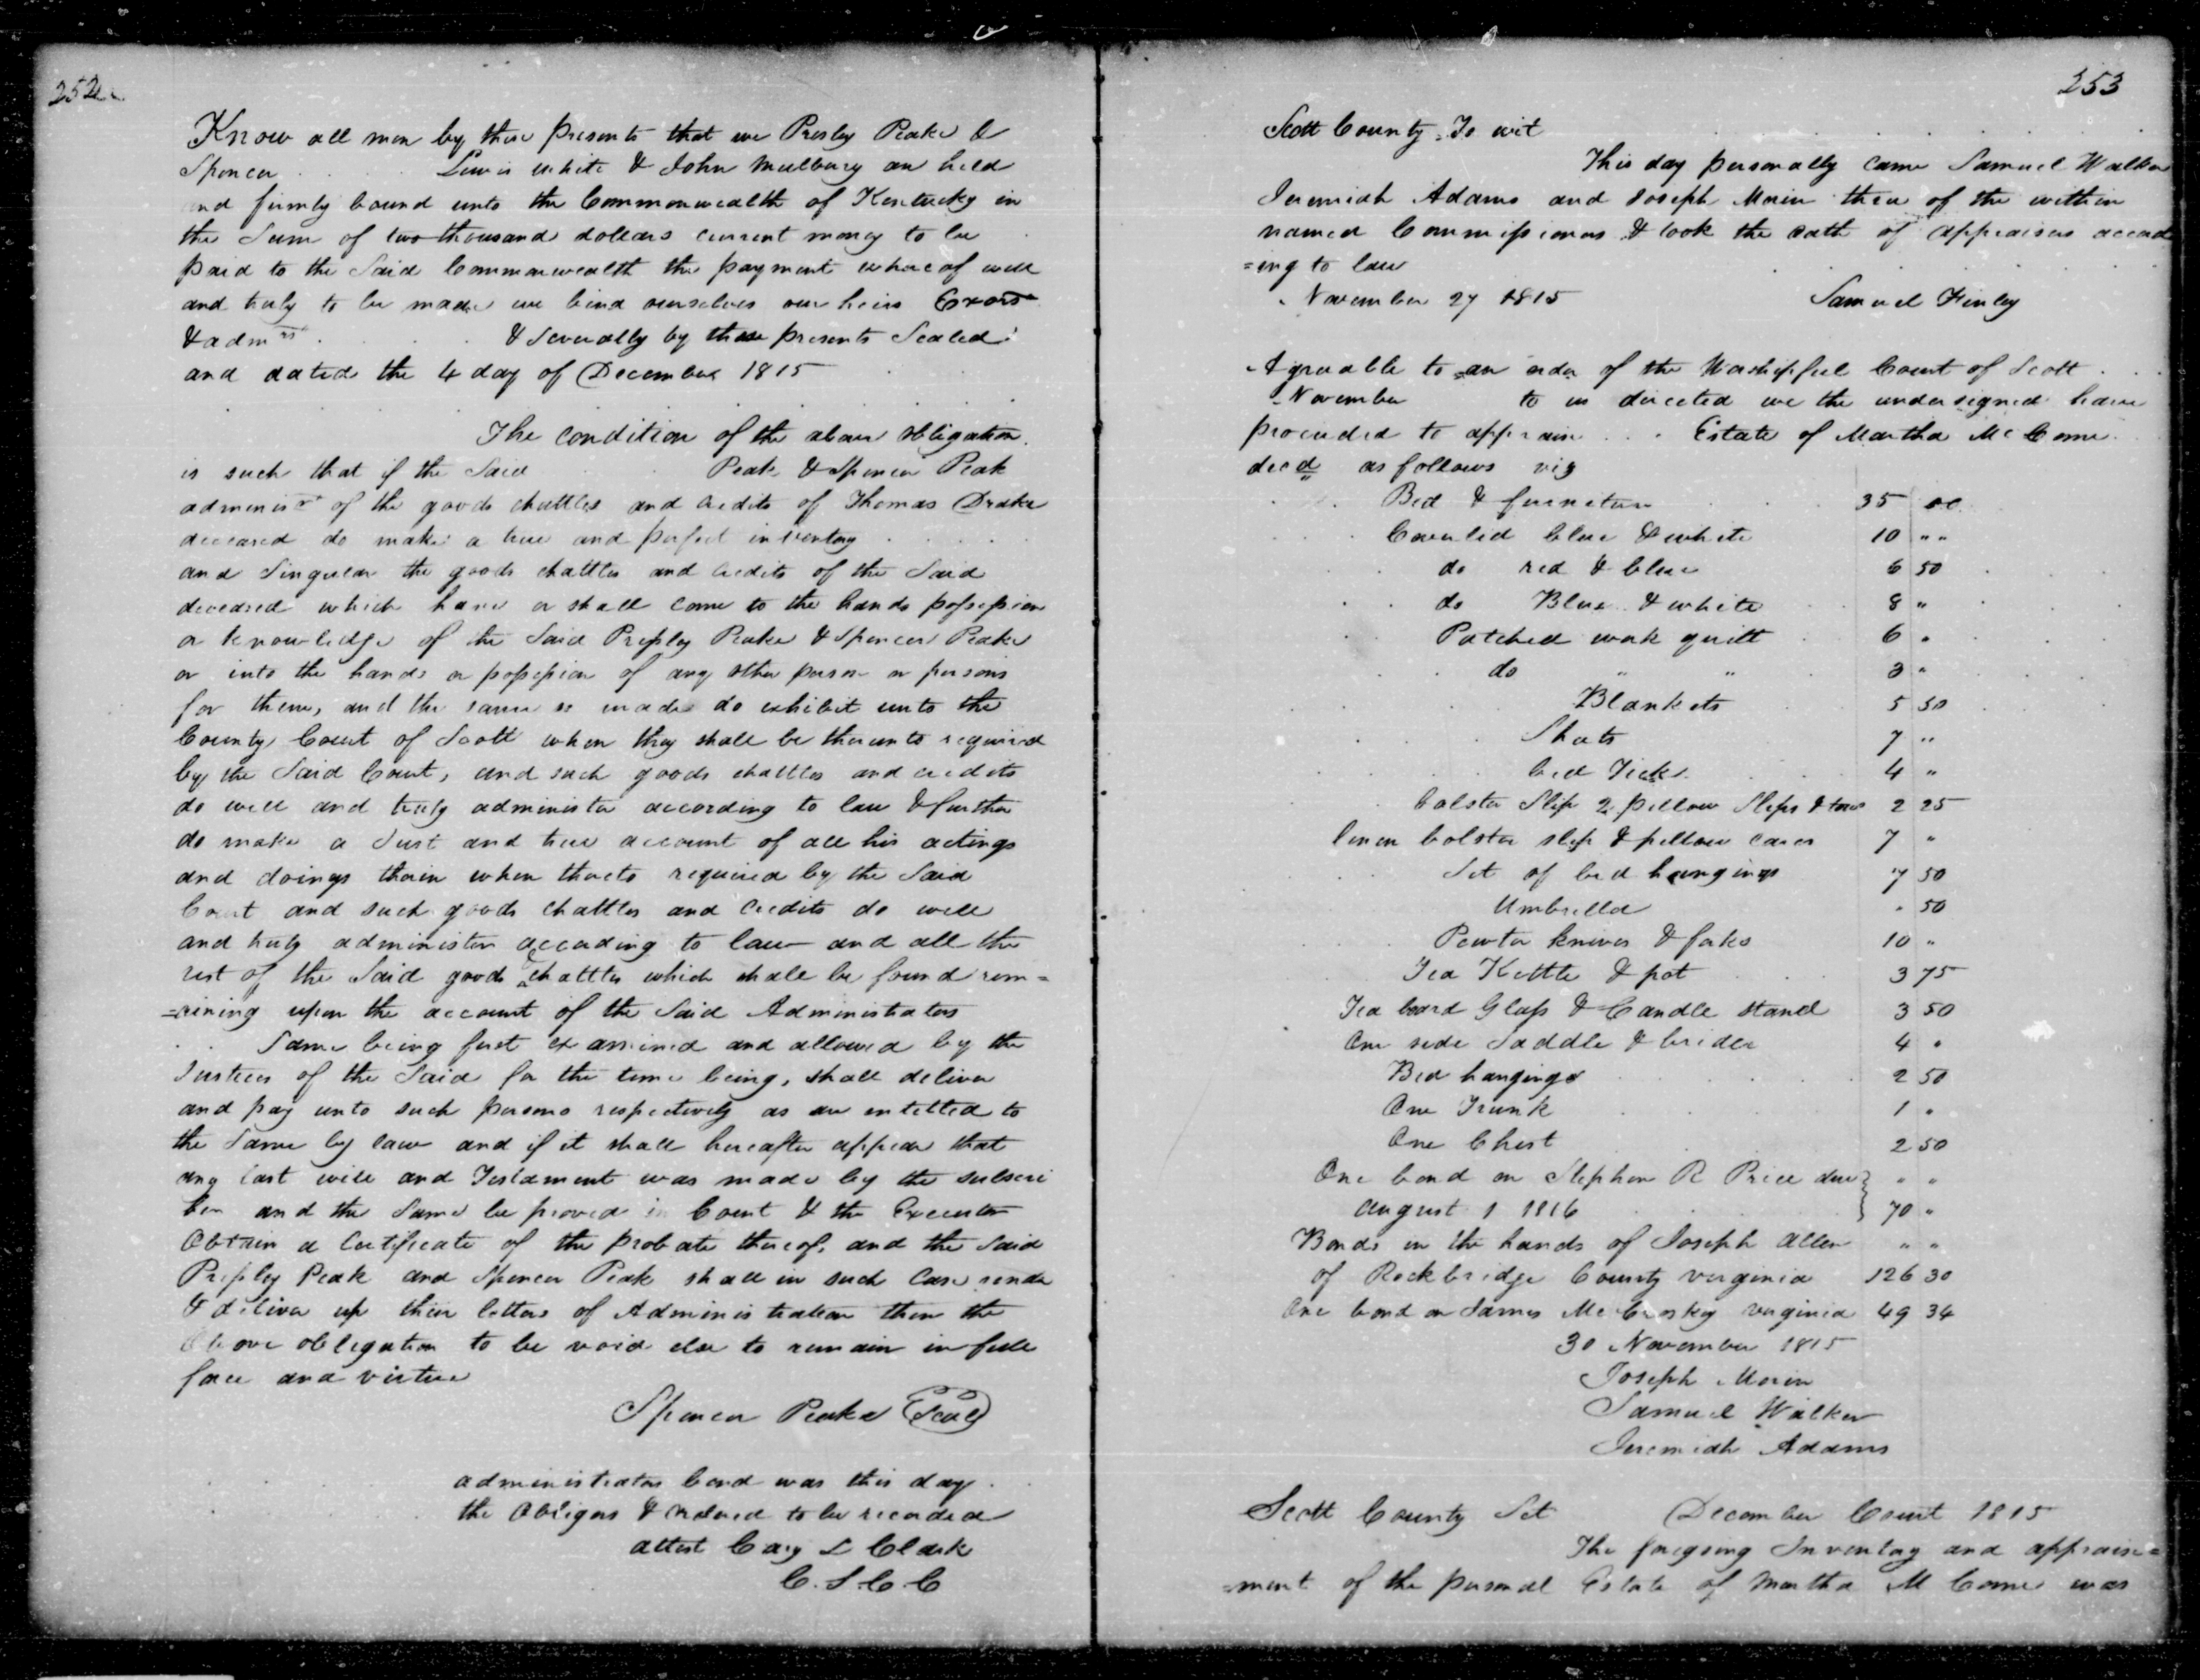 252
Know all men by these presents that we Presley Peake &
Spencer . . . . Lewis White & John Mulbury are held
and firmly bound unto the Commonwealth of Kentucky in
the Sum of two thousand dollars current money to be
paid to the Said Commonwealth the payment whereof well
and truly to be made we bind ourselves our heirs Exors
& admrs . . . . & Severally by these presents Sealed
and dated the 4 day of December 1815
The condition of the above obligation
is such that if the Said Peak & Spencer Peak
adminisrs of the goods chattles and credits of Thomas Drake
deceased do make a true and perfect inventory . . . .
and Singular the goods chattles and credits of the Said
deceased which have or shall come to the hands possession
or knowledge of the Said Pressley Peake & Spencer Peake
or into the hands or possession of any other person or persons
for them, and the same so made do exhibit unto the
County Court of Scott when they shall be thereunto required
by the Said Court, and such goods chattles and credits
do well and truly administer according to law & further
do make a Just and true account of all his actings
and doings therein when thereto required by the Said
Court and such goods chattles and credits do well
and truly administer according to law and all the
rest of the Said goods & chattles which shall be found rem=
=aining upon the account of the Said Administrators
. . Same being first examined and allowed by the
Justices of the Said for the time being, shall deliver
and pay unto such persons respectively as are entitled to
the Same by law and if it shall hereafter appear that
any last will and Testament was made by the subscri
ber and the Same be proved in Court & the Executor
Obtain a Certificate of the probate thereof, and the Said
Pressley Peak and Spencer Peak shall in such Case render
& deliver up their letters of Administration then the
Above obligation to be void else to remain in full
force and virtue
Spencer Peake (Seal)
administrators bond was this day . .
the Obligors & Ordered to be recorded
attest Cary L Clark
C. S. C. C
253
Scott County To wit
This day personally came Samuel Walker
Jeremiah Adams and Joseph Morin three of the within
named Commissioners & took the oath of appraisers accord
=ing to law
November 27 1815 Samuel Finley
Agreable to an order of the Worshipful Court of Scott . .
November to us directed we the undersigned have
proceeded to appraise . . . Estate of Martha McCome
decd as follows viz
Bed & furneture 35 00
Coverlid blue & white 10 " "
do red & blue 6 50
do Blue & white 8 "
Patched work quilt 6 "
do " " 3 "
Blankets 5 50
Sheets 7 "
bed Tick 4 "
bolster Slip 2 pillow Slips & tow 2 25
linen bolster slip & pillow cases 7 "
Set of bed hangings 7 50
Umbrella " 50
Pewter knives & forks 10 "
Tea Kettle & pot 3 75
Tea board Glass & Candle stand 3 50
One side Saddle & bridle 4 "
Bed hangings 2 50
One Trunk 1 "
One Chest 2 50
One bond on Stephen R Price due } " "
August 1 1816 } 70 "
Bonds in the hands of Joseph Allen " "
of Rockbridge County virginia 126 30
One bond on James McCroskey virginia 49 34
30 November 1815
Joseph Morin
Samuel Walker
Jeremiah Adams
Scott County Sct December Court 1815
The foregoing Inventory and appraise=
=ment of the personal Estate of Martha M Come was